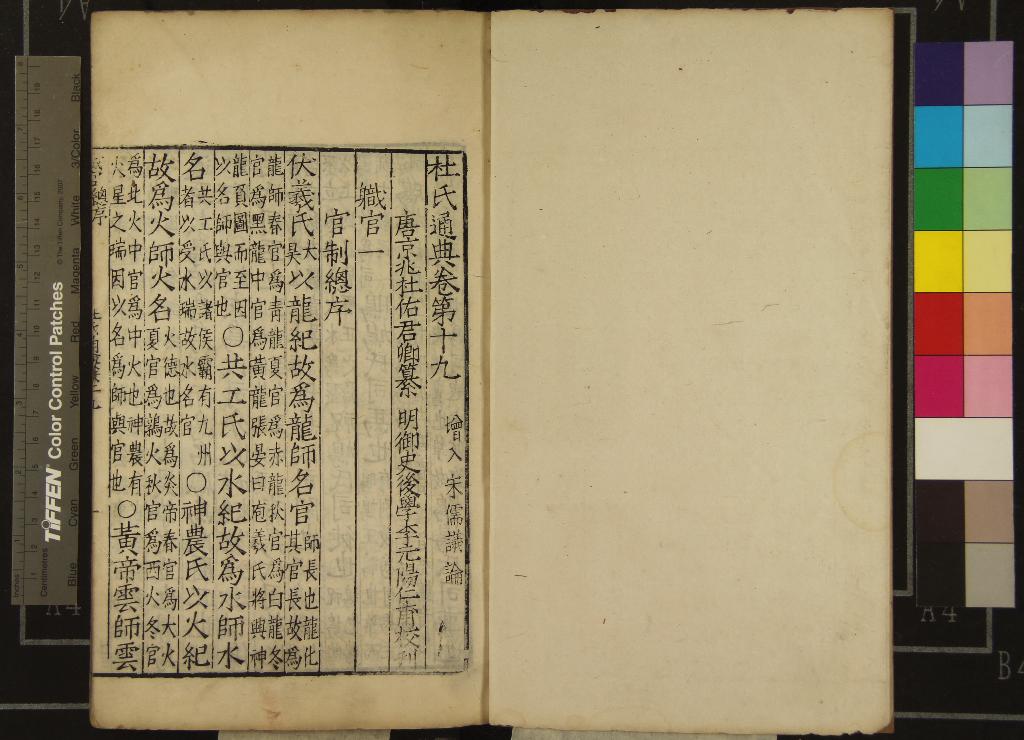 杜氏通典卷第十九
增入宋儒議論
唐京兆杜佑君卿纂 明御史後學李元陽仁甫校刊
職官一
官制總序
伏羲氏大昊以龍紀故爲龍師名官師長也龍化其官長故爲
龍師春官爲青龍夏官爲赤龍秋官爲白龍冬
官爲黑龍中官爲黃龍張晏曰庖羲氏將興神
龍負圖而至因以名師與官也〇共工氏以水紀故爲水師水
名共工氏以諸侯霸有九州者以受水瑞故水名官〇神農氏以火紀
故爲火師火名火德也故爲炎帝春官爲大火夏官爲鶉火秋官爲西火冬官
爲北火中官爲中火也神農有火星之瑞因以名爲師與官也〇黃帝雲師雲
TIFFEN Color Control Patches
© The Tiffen Company, 2007
Inches
Centimetres
Blue
Cyan
Green
Yellow
Red
Magenta
White
3/Color
Black
A4
A4